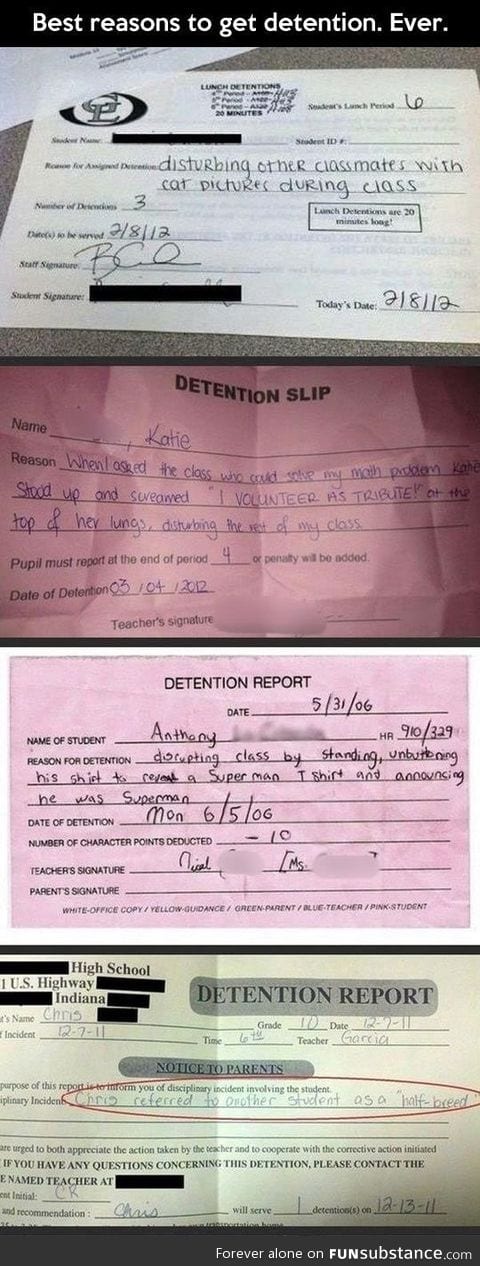 Best reasons to get detention. Ever.
LUNCH DETENTIONS
20 MINUTES
Student's Lunch Period 6
Student Name: Student ID #:
Reason for Assigned Detention: disturbing other classmates with
cat pictures during class
Number of Detentions 3
Lunch Detentions are 20
minutes long!
Date(s) to be served 2/8/12
Staff Signature:
Student Signature:
Today's Date: 2/8/12
DETENTION SLIP
Name , Katie
Reason When I asked the class who could solve my math problem Katie
Stood up and screamed "I VOLUNTEER AS TRIBUTE!" at the
top of her lungs, disturbing the rest of my class.
Pupil must report at the end of period 4 or penalty will be added.
Date of Detention 03/04/2012
Teacher's signature
DETENTION REPORT
DATE 5/31/06
NAME OF STUDENT Anthony HR 910/329
REASON FOR DETENTION disrupting class by standing, unbuttoning
his shirt to reveal a Superman T shirt and announcing
he was Superman
DATE OF DETENTION Mon 6/5/06
NUMBER OF CHARACTER POINTS DEDUCTED -10
TEACHER'S SIGNATURE [Ms. ]
PARENT'S SIGNATURE
WHITE-OFFICE COPY / YELLOW-GUIDANCE / GREEN-PARENT / BLUE-TEACHER / PINK-STUDENT
High School
1 U.S. Highway
Indiana
DETENTION REPORT
t's Name Chris Grade 10 Date 12-7-11
f Incident 12-7-11 Time 6th Teacher Garcia
NOTICE TO PARENTS
purpose of this report is to inform you of disciplinary incident involving the student.
iplinary Incident: Chris referred to another student as a "half-breed"
are urged to both appreciate the action taken by the teacher and to cooperate with the corrective action initiated
IF YOU HAVE ANY QUESTIONS CONCERNING THIS DETENTION, PLEASE CONTACT THE
E NAMED TEACHER AT
ent Initial: CR
and recommendation: Chris will serve 1 detention(s) on 12-13-11
transportation home
Forever alone on FUNsubstance.com